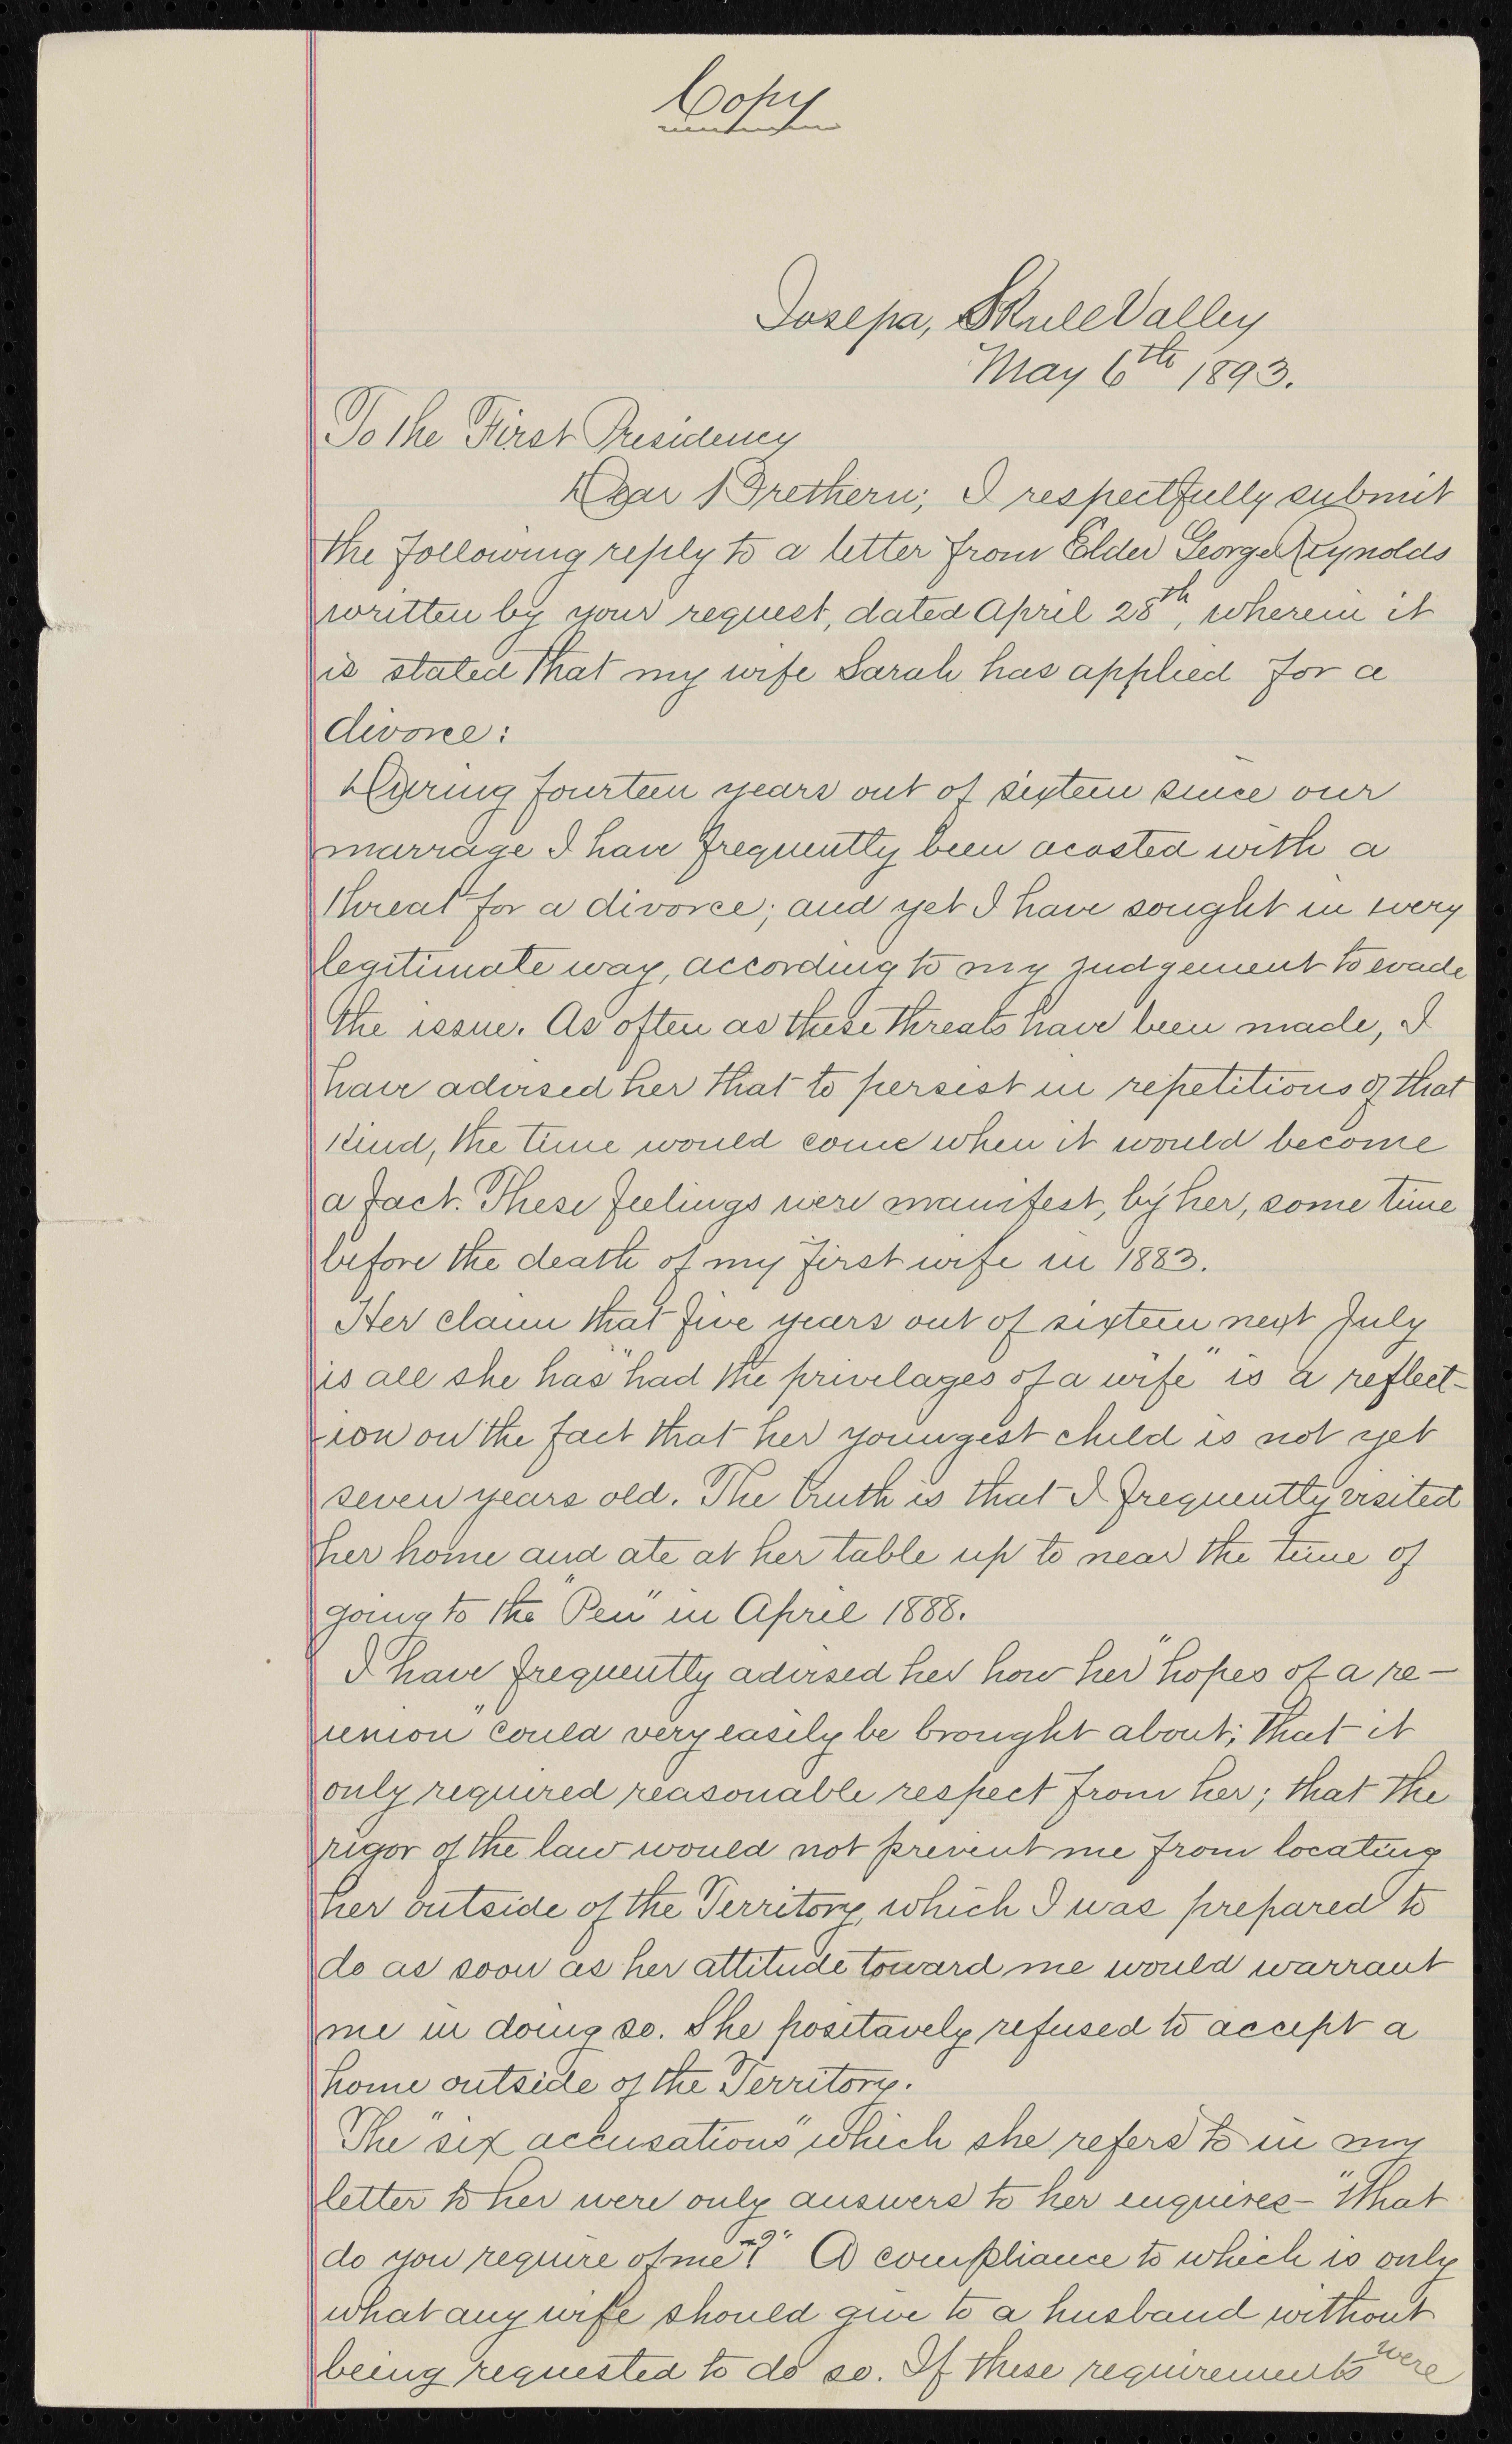 Copy
Iosepa, Skull Valley
May 6th 1893.
To the First Presidency
Dear Brethern; I respectfully submit
the following reply to a letter from Elder George Reynolds
written by your request, dated April 28th, wherein it
is stated that my wife Sarah has applied for a
divorce:
During fourteen years out of sixteen since our
marrage I have frequently been acosted with a
threat for a divorce; and yet I have sought in every
legitimate way, according to my judgement to evade
the issue. As often as these threats have been made, I
have advised her that to persist in repetitions of that
kind, the time would come when it would become
a fact. These feelings were manifest, by her, some time
before the death of my first wife in 1883.
Her claim that five years out of sixteen next July
is all she has "had the privelages of a wife" is a reflect-
ion on the fact that her youngest child is not yet
seven years old. The truth is that I frequently visited
her home and ate at her table up to near the time of
going to the "Pen" in April 1888.
I have frequently advised her how her "hopes of a re-
union" could very easily be brought about; that it
only required reasonable respect from her; that the
rigor of the law would not prevent me from locating
her outside of the Territory, which I was prepared to
do as soon as her attitude toward me would warrant
me in doing so. She positavely refused to accept a
home outside of the Territory.
The "six accusations" which she refers to in my
letter to her were only answers to her enquires - "What
do you require of me?" A compliance to which is only
what any wife should give to a husband without
being requested to do so. If these requirements were